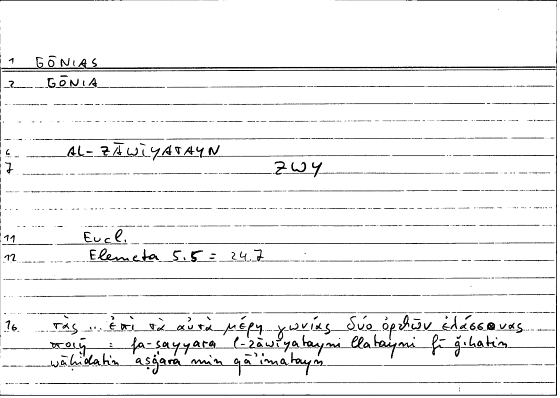 1 GŌNIAS
2 GŌNIA
6 AL-ZĀWIYATAYN
7 ZWY
11 Eucl.
12 Elementa 5.5 = 24.7
16 τὰς ... ἐπὶ τὰ αὐτὰ μέρη γωνίας δύο ὀρθῶν ἐλάσσονας
ποιῇ = fa-ṣayyara l-zāwiyatayni llatayni fī ǧihatin
wāḥidatin aṣġara min qāʾimatayn